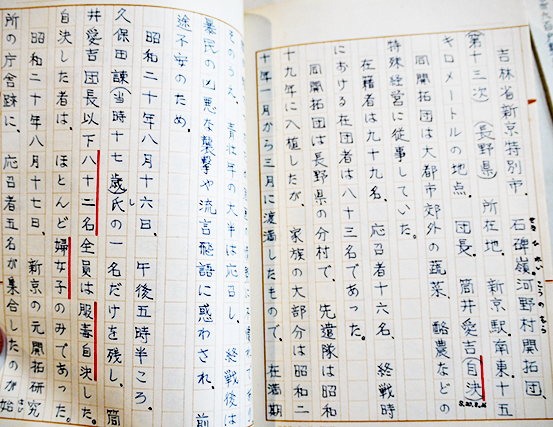 吉林省新京特別市、石碑嶺河野村開拓団、
第十三次(長野県)所在地、新京駅南東十五
キロメートルの地点。団長。筒井愛吉(自決)
同開拓団は大都市郊外の蔬菜、酪農などの
特殊経営に従事していた。
在籍者は九十九名、応召者十六名、終戦時
における在団者は八十三名であった。
同開拓団は長野県の分村で、先遣隊は昭和
十九年に入植したが、家族の大部分は昭和二
十年一月から三月に渡満したもので、在満期
そのうえ、青壮年の大半は応召し、終戦後は
暴民の凶悪な襲撃や流言飛語に惑わされ、前
途不安のため、
昭和二十年八月十六日、午後五時半ころ。
久保田諫(当時十七歳)氏の一名だけを残し、筒
井愛吉団長以下八十二名全員は服毒自決した。
自決した者は、ほとんど婦女子のみであった。
昭和二十年八月十七日、新京の元開拓研究
所の庁舎跡に、応召者五名が集合したのが始